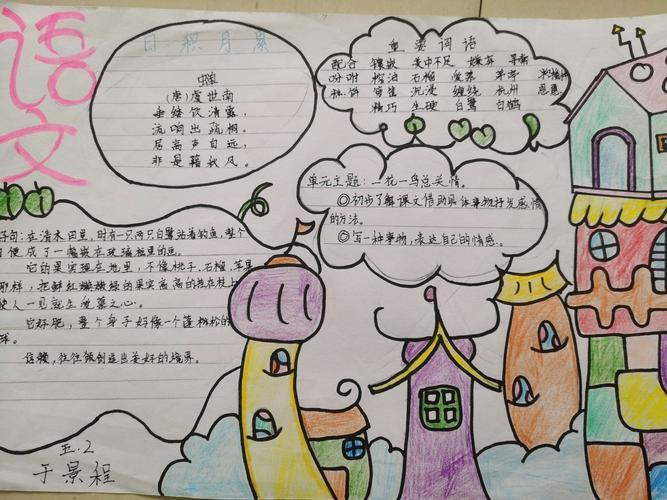 语文
日积月累
蝉
(唐)虞世南
垂緌饮清露,
流响出疏桐。
居高声自远,
非是藉秋风。
重要词语
配合 镶嵌 美中不足 嫌弃 寻常
吩咐 榨油 石榴 爱慕 茅亭
糕饼 亭笛 沉浸 缠绕 杭州 恩惠。
精巧 生硬 白鹭 白鹤
单元主题:一花一鸟总关情。
◎初步了解课文借助具体事物抒发感情
的方法。
◎写一种事物,表达自己的情感。
好句:在清水田里,时有一只两只白鹭站着钓鱼,整个
便成了一幅嵌在玻璃框里的画。
它的果实埋在地里,不像桃子、石榴、苹果
那样,把鲜红嫩绿的果实高高的挂在枝上,
使人一见就生爱慕之心。
它好肥,整个身子好像一个蓬松的
球。
信赖,往往能创造出美好的境界。
五.2
于景程